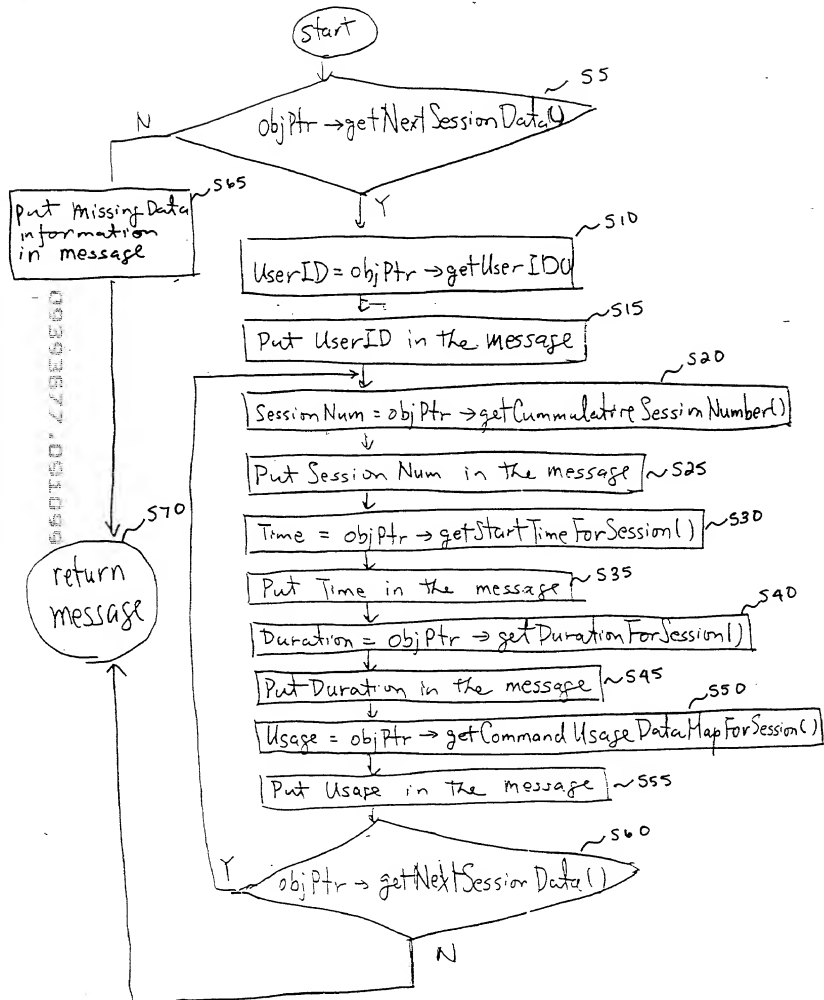 start
S5
objPtr→getNextSessionData()
N
Y
S65
put missing Data
information
in message
S10
UserID = objPtr→getUserID()
S15
Put UserID in the message
S20
SessionNum = objPtr→getCummulativeSessionNumber()
Put Session Num in the message
S25
Time = objPtr→getStartTimeForSession()
S30
Put Time in the message
S35
S40
Duration = objPtr→getDurationForSession()
Put Duration in the message
S45
S50
Usage = objPtr→getCommandUsageDataMapForSession()
Put Usage in the message
S55
S60
Y
objPtr→getNextSessionData()
N
S70
return
message
09393677.091099